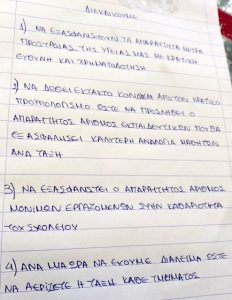 ΔΙΕΚΔΙΚΟΥΜΕ
1) ΝΑ ΕΞΑΣΦΑΛΙΣΤΟΥΝ ΤΑ ΑΠΑΡΑΙΤΗΤΑ ΜΕΤΡΑ
ΠΡΟΣΤΑΣΙΑΣ ΤΗΣ ΥΓΕΙΑΣ ΜΑΣ ΜΕ ΚΡΑΤΙΚΗ
ΕΥΘΥΝΗ ΚΑΙ ΧΡΗΜΑΤΟΔΟΤΗΣΗ
2) ΝΑ ΔΟΘΕΙ ΕΚΤΑΚΤΟ ΚΟΝΔΥΛΙ ΑΠΟ ΤΟΝ ΚΡΑΤΙΚΟ
ΠΡΟΥΠΟΛΟΓΙΣΜΟ ΩΣΤΕ ΝΑ ΠΡΟΣΛΗΦΘΕΙ Ο
ΑΠΑΡΑΙΤΗΤΟΣ ΑΡΙΘΜΟΣ ΕΚΠΑΙΔΕΥΤΙΚΩΝ ΠΟΥ ΘΑ
ΕΞΑΣΦΑΛΗΣΕΙ ΚΑΛΥΤΕΡΗ ΑΝΑΛΟΓΙΑ ΜΑΘΗΤΩΝ
ΑΝΑ ΤΑΞΗ
3) ΝΑ ΕΞΑΣΦΑΛΙΣΤΕΙ Ο ΑΠΑΡΑΙΤΗΤΟΣ ΑΡΙΘΜΟΣ
ΜΟΝΙΜΩΝ ΕΡΓΑΖΟΜΕΝΩΝ ΣΤΗΝ ΚΑΘΑΡΙΟΤΗΤΑ
ΤΟΥ ΣΧΟΛΕΙΟΥ
4) ΑΝΑ ΜΙΑ ΩΡΑ ΝΑ ΕΧΟΥΜΕ ΔΙΑΛΕΙΜΑ ΩΣΤΕ
ΝΑ ΑΕΡΙΖΕΤΕ Η ΤΑΞΗ ΚΑΘΕ ΤΜΗΜΑΤΟΣ